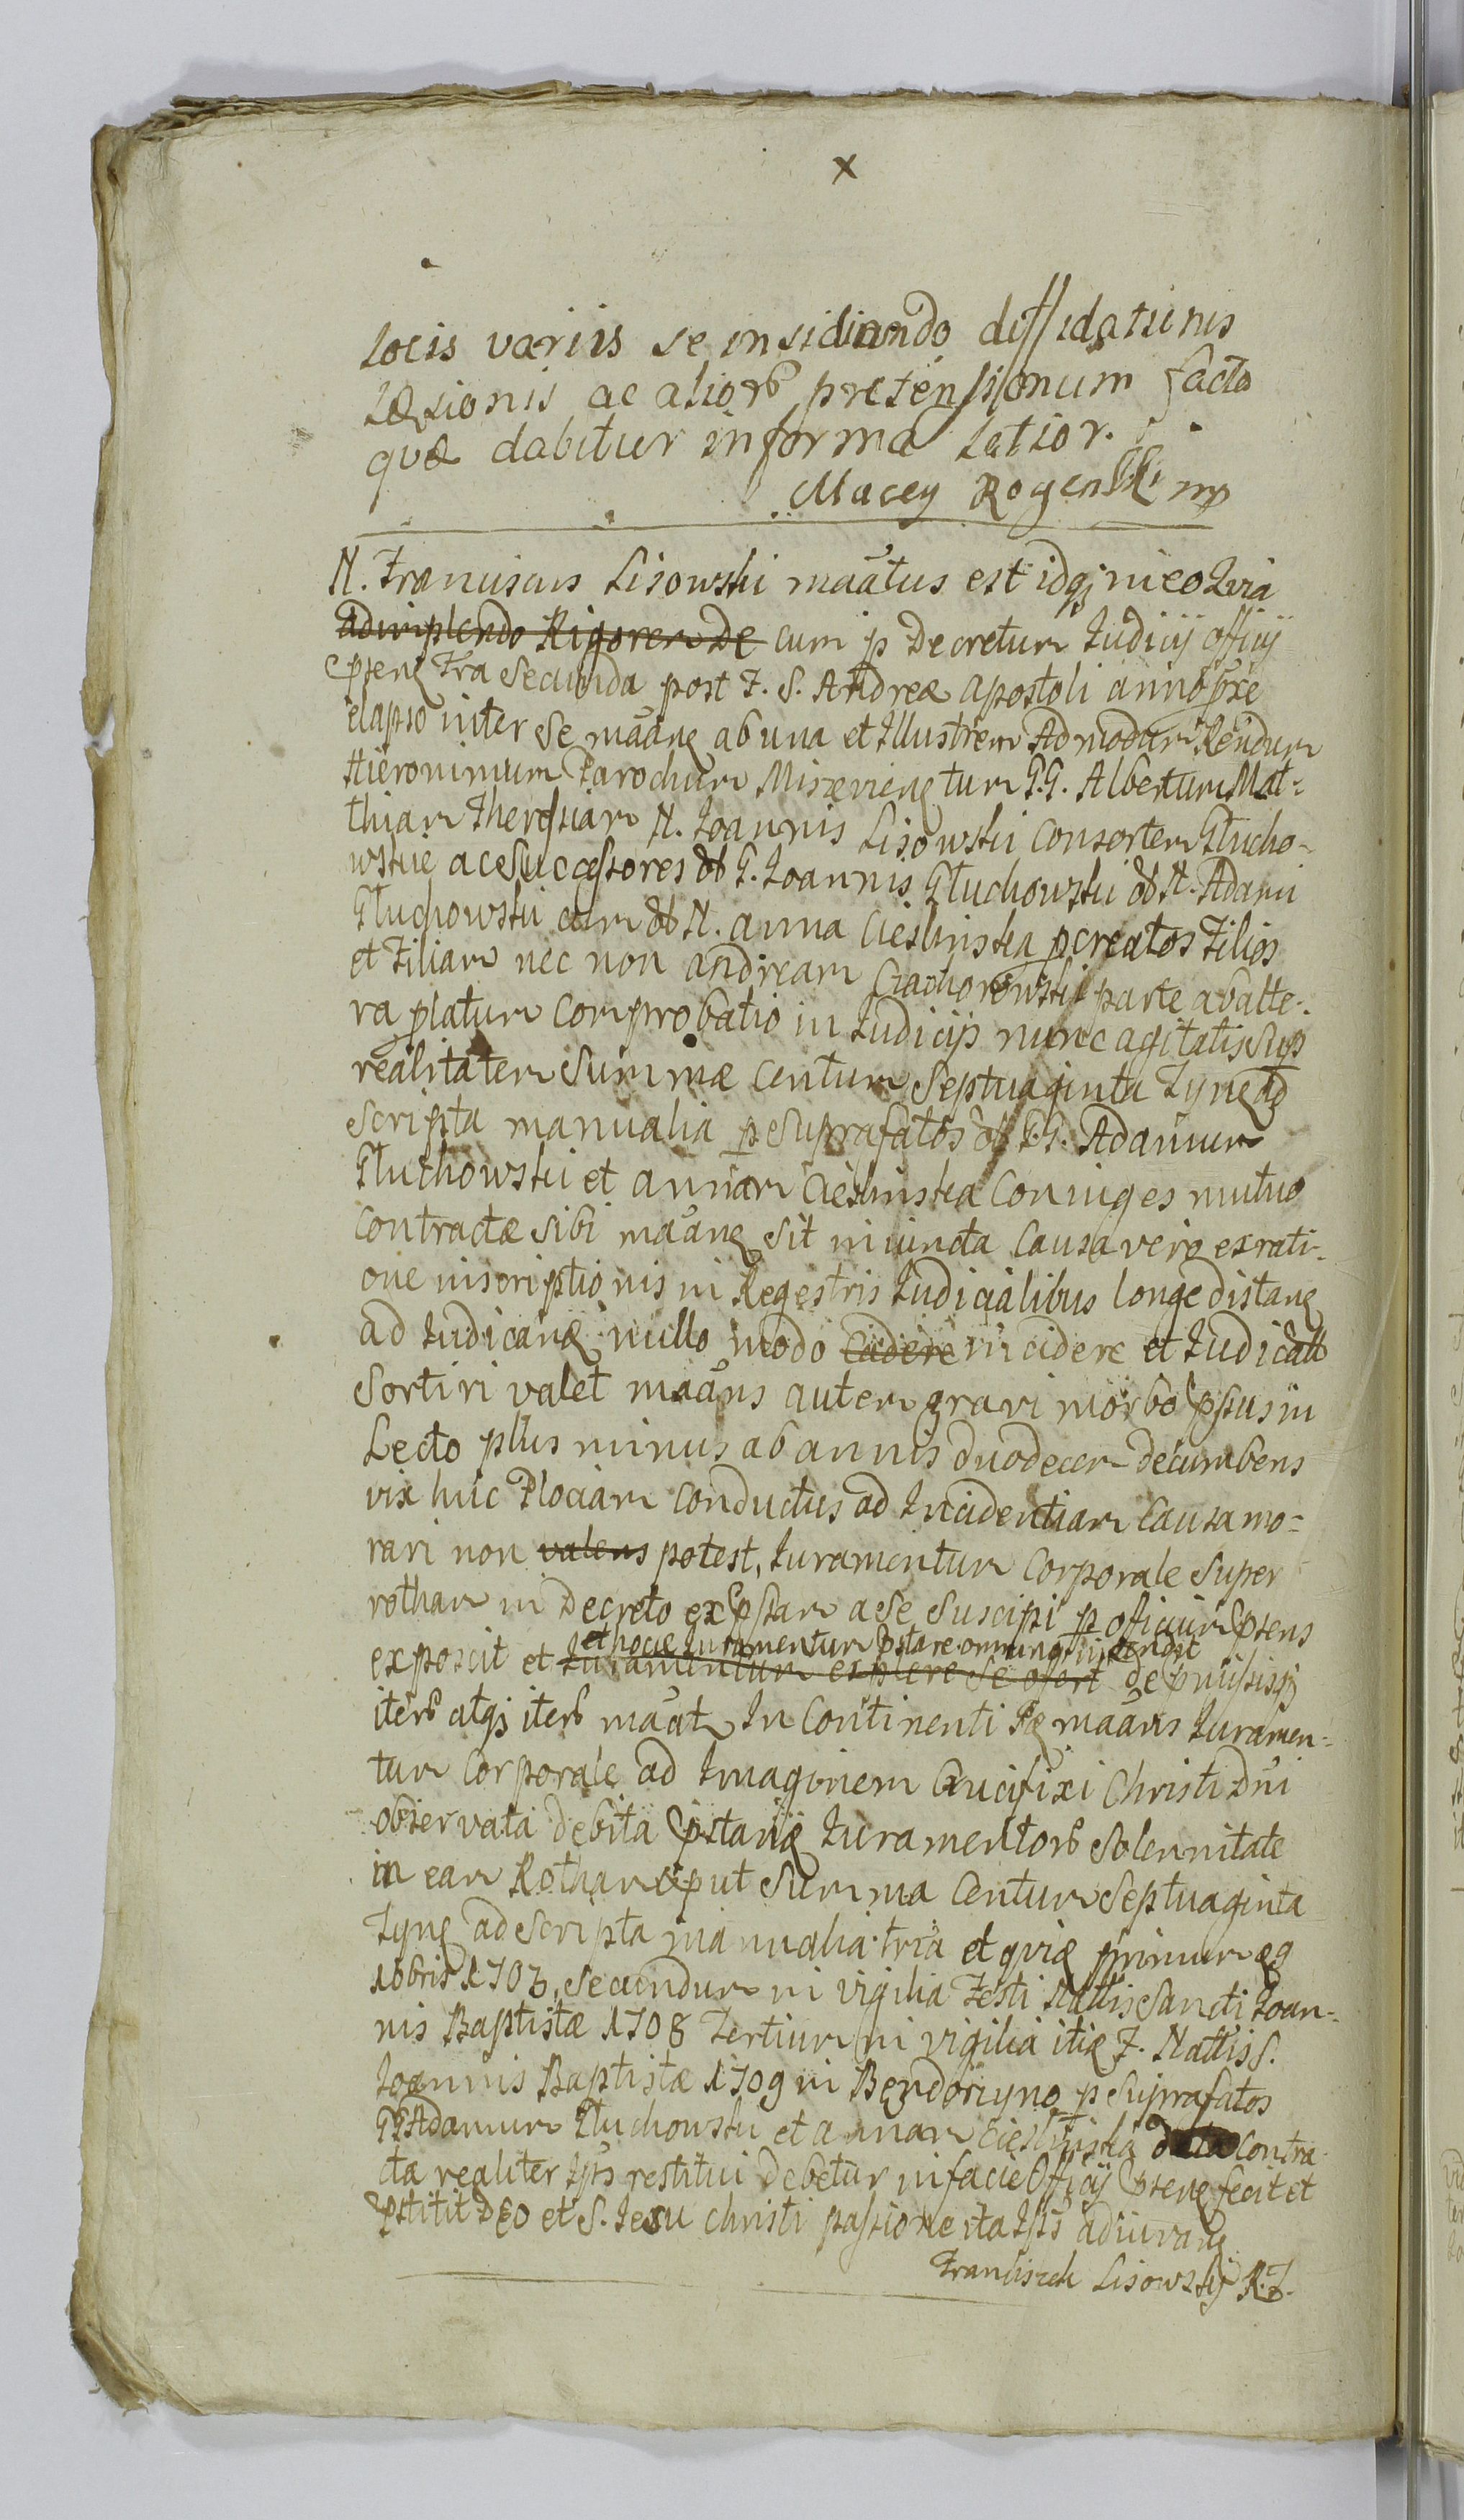 x
locis variis se insidiando diffidationis
læsionis ac alior pretensionum facta
quæ dabitur in forma latior.
Maciey Rogenski mp
N. Franciscus Lisowski maatus est idq; nieo Quia
adimplendo Rigorem De cum p Decretum Iudicij officij
pten Fra Secunda post F. S. Andreæ Apostoli anno pxe
elapso inter se maan ab una et Illustrem Admodum Rendum
Hieronimum Parochum tum G.G. Albertum Mat-
thiam N. Joannis Lisowski Consortem Głucho-
wskie ac Successores G. Joannis Głuchowski N. Adami
Głuchowski cum N. anna Cieslinska pcreatos Filios
et Filiam nec non andream parte ab alte-
ra platum Comprobatio in Iudicijs nunc agitatis sup
realitatem Summæ Centum Septuaginta Tyn ad
Scripta manualia p Suprafatos G.G. Adamum
Głuchowski et annam Cieslinska Coniuges mutuo
Contractæ sibi maan sit iniuncta Causa vero ex rati-
one inscriptionis in Regestris Iudicialibus longe distan
ad Iudican nullo modo Cadere incidere et Iudicatt
Sortiri valet maans autem gravi morbo pssus in
Lecto plus minus ab annis duodecem decumbens
vix huc Plociam Conductus ad Incidentiam Causa mo-
rari non valens potest, Iuramentum Corporale Super
rotham in Decreto expssam a se Suscipi p officium ptens
et hocce Iuramentum pstare omnino intendit
exposcit et Iuramentum explere se ofert de pmissis
iter atq; iter maat In Continenti Iuramen-
tum Corporale ad Imaginem Crucifixi Christi Dni
observata debita pstan Iuramentor Solennitate
in eam Rotham put Summa Centum Septuaginta
Tyn ad Scripta manualia tria et primum
Xbris 1703, Secundum in vigilia Festi Nattis Sancti Joan-
nis Baptistæ 1708 Tertium in vigilia F. Nattis S.
Joannis Baptistæ 1709 in p Suprafatos
GG Adamum Głuchowski et annam Cieslinska Contra-
cta realiter Ipsis restitui debetur in facie Officij pten fecit et
pstitit DEO et S. Jesu Christi passione ita Ipsi adiuvan
Franciszek Lisowski R.Z.